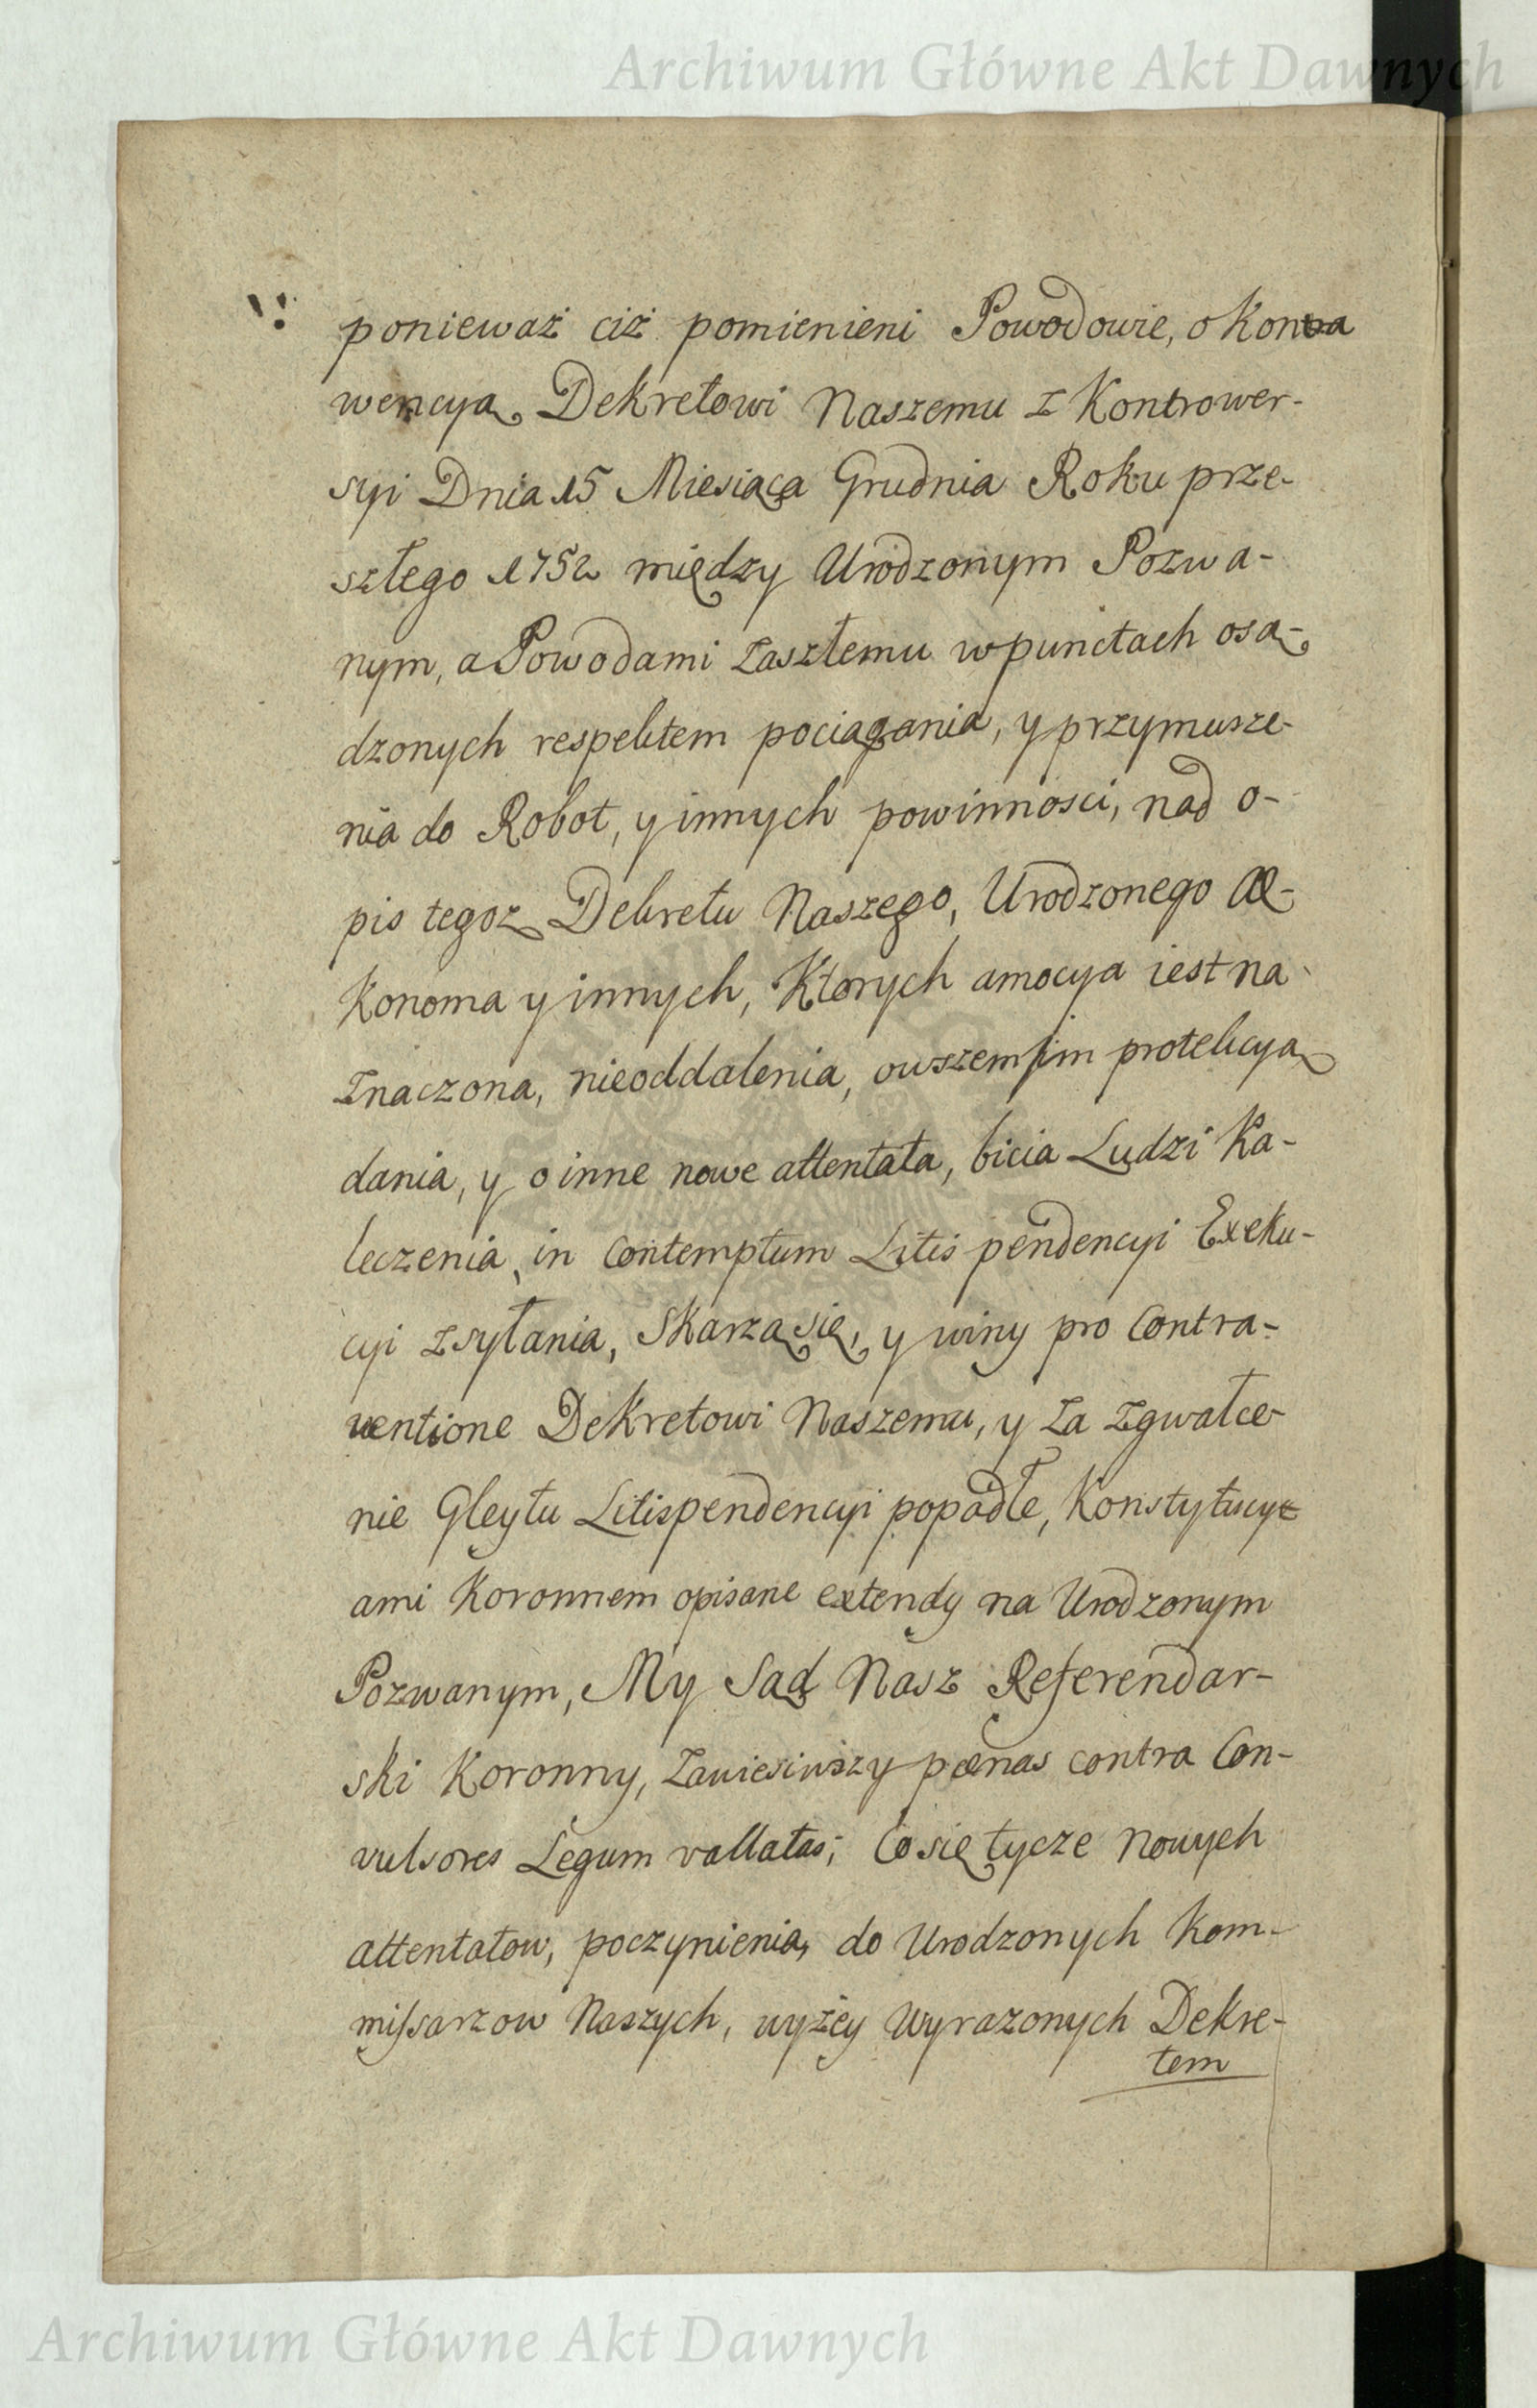 Archiwum Główne Akt Dawnych
ponieważ ciż pomienieni Powodowie, o Kontra
wencyą Dekretowi Naszemu z Kontrower-
syi Dnia 15 Miesiąca Grudnia Roku prze-
szłego 1752 między Urodzonym Pozwa-
nym, a Powodami zaszłemu w punctach osą-
dzonych respektem pociągania, y przymusze-
nia do Robot, y innych powinnosci, nad o-
pis tegoz Dekretu Naszego, Urodzonego Æ-
Konoma y innych, Ktorych amocya iest na-
znaczona, nieoddalenia, owszem im protekcyą
dania, y o inne nowe attentata, bicia Ludzi Ka-
leczenia, in Contemptum Litis pendencyi Exeku-
cyi zsyłania, Skarzą się, y winy pro Contra-
ventione Dekretowi Naszemu, y za zgwałce-
nie Gleytu Litispendencyi popadłe, Konstytucy-
ami Koronnem opisane extendy na Urodzonym
Pozwanym, My Sąd Nasz Referendar-
ski Koronny, zawiesiwszy pœnas contra Con-
vulsores Legum vallatas; Co się tycze nowych
attentatow, poczynienia, do Urodzonych Kom-
missarzow Naszych, wyżey wyrazonych Dekre-
tem
Archiwum Główne Akt Dawnych